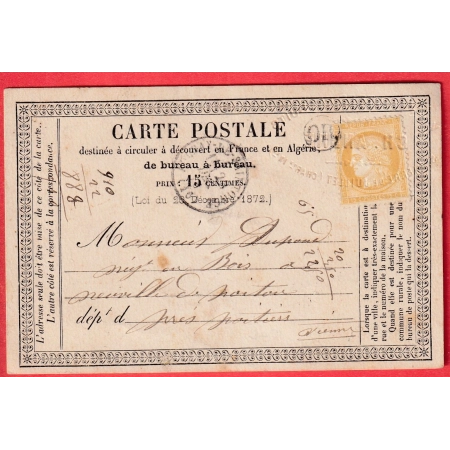 CARTE POSTALE
destinée à circuler à découvert en France et en Algérie,
de bureau à bureau.
PRIX : 15 CENTIMES.
(Loi du 20 Décembre 1872.)
L'adresse seule doit être mise de ce côté de la carte.
L'autre côté est réservé à la correspondance.
910
888
OR
Monsieur Dupond
en Bois
neuville de poitou
dépt d
pres poitiers
Vienne
65
Lorsque la carte est à destination
d'une ville, indiquer très-exactement la
rue et le numéro de la maison.
Quand elle est destinée pour une
commune rurale, indiquer le nom du
bureau de poste qui la dessert.